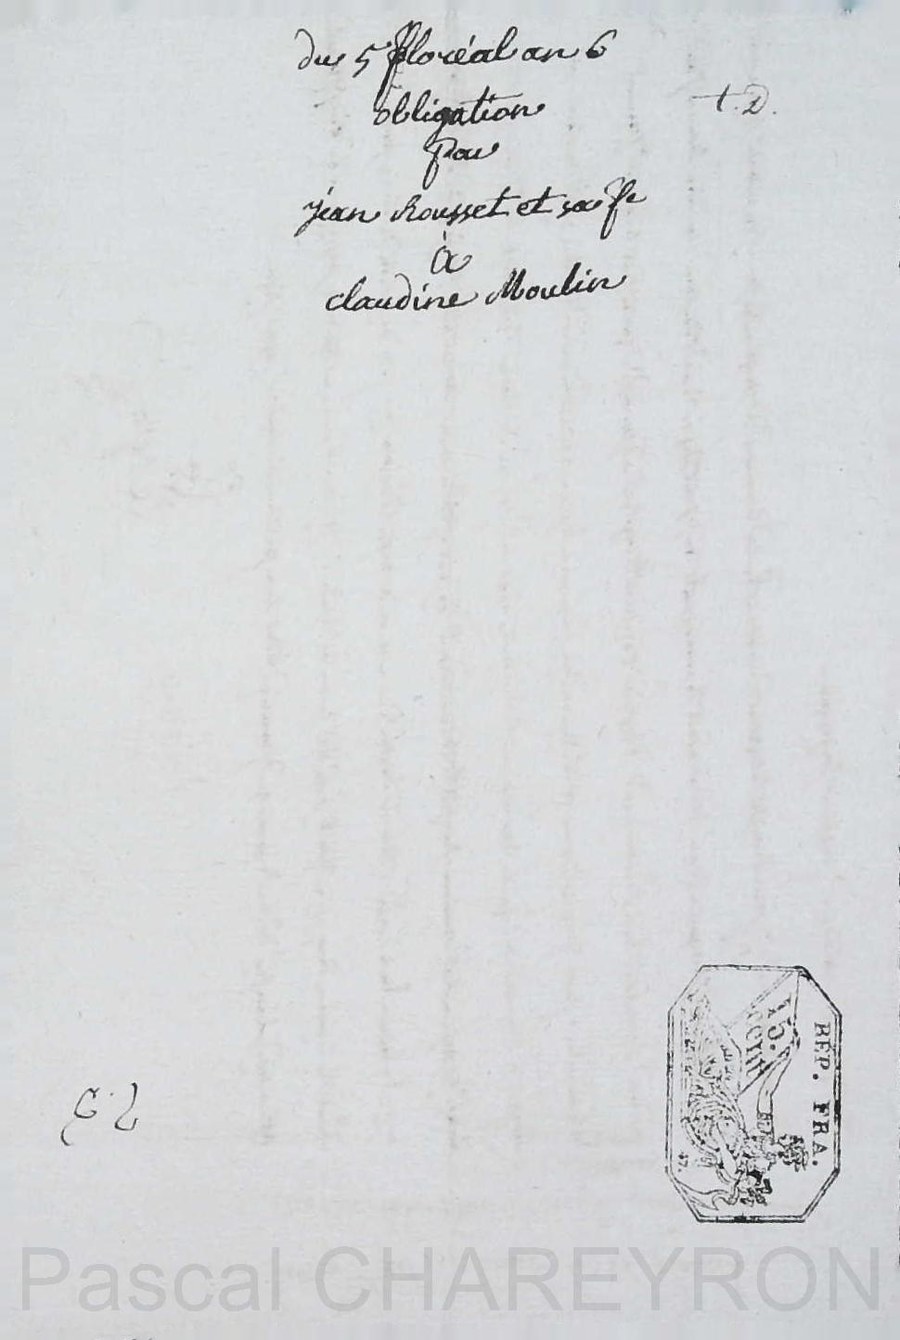 du 5 floréal an 6
obligation
t. D.
par
jéan Rousset et sa fe
à
claudine Moulin
REP. FRA.
75.
CTM
Pascal CHAREYRON